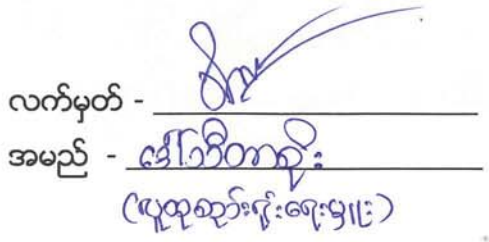 လက်မှတ် -
အမည် - ဒေါ်သီတာစိုး
(လူထုဆည်းရုံးရေးမှူး)